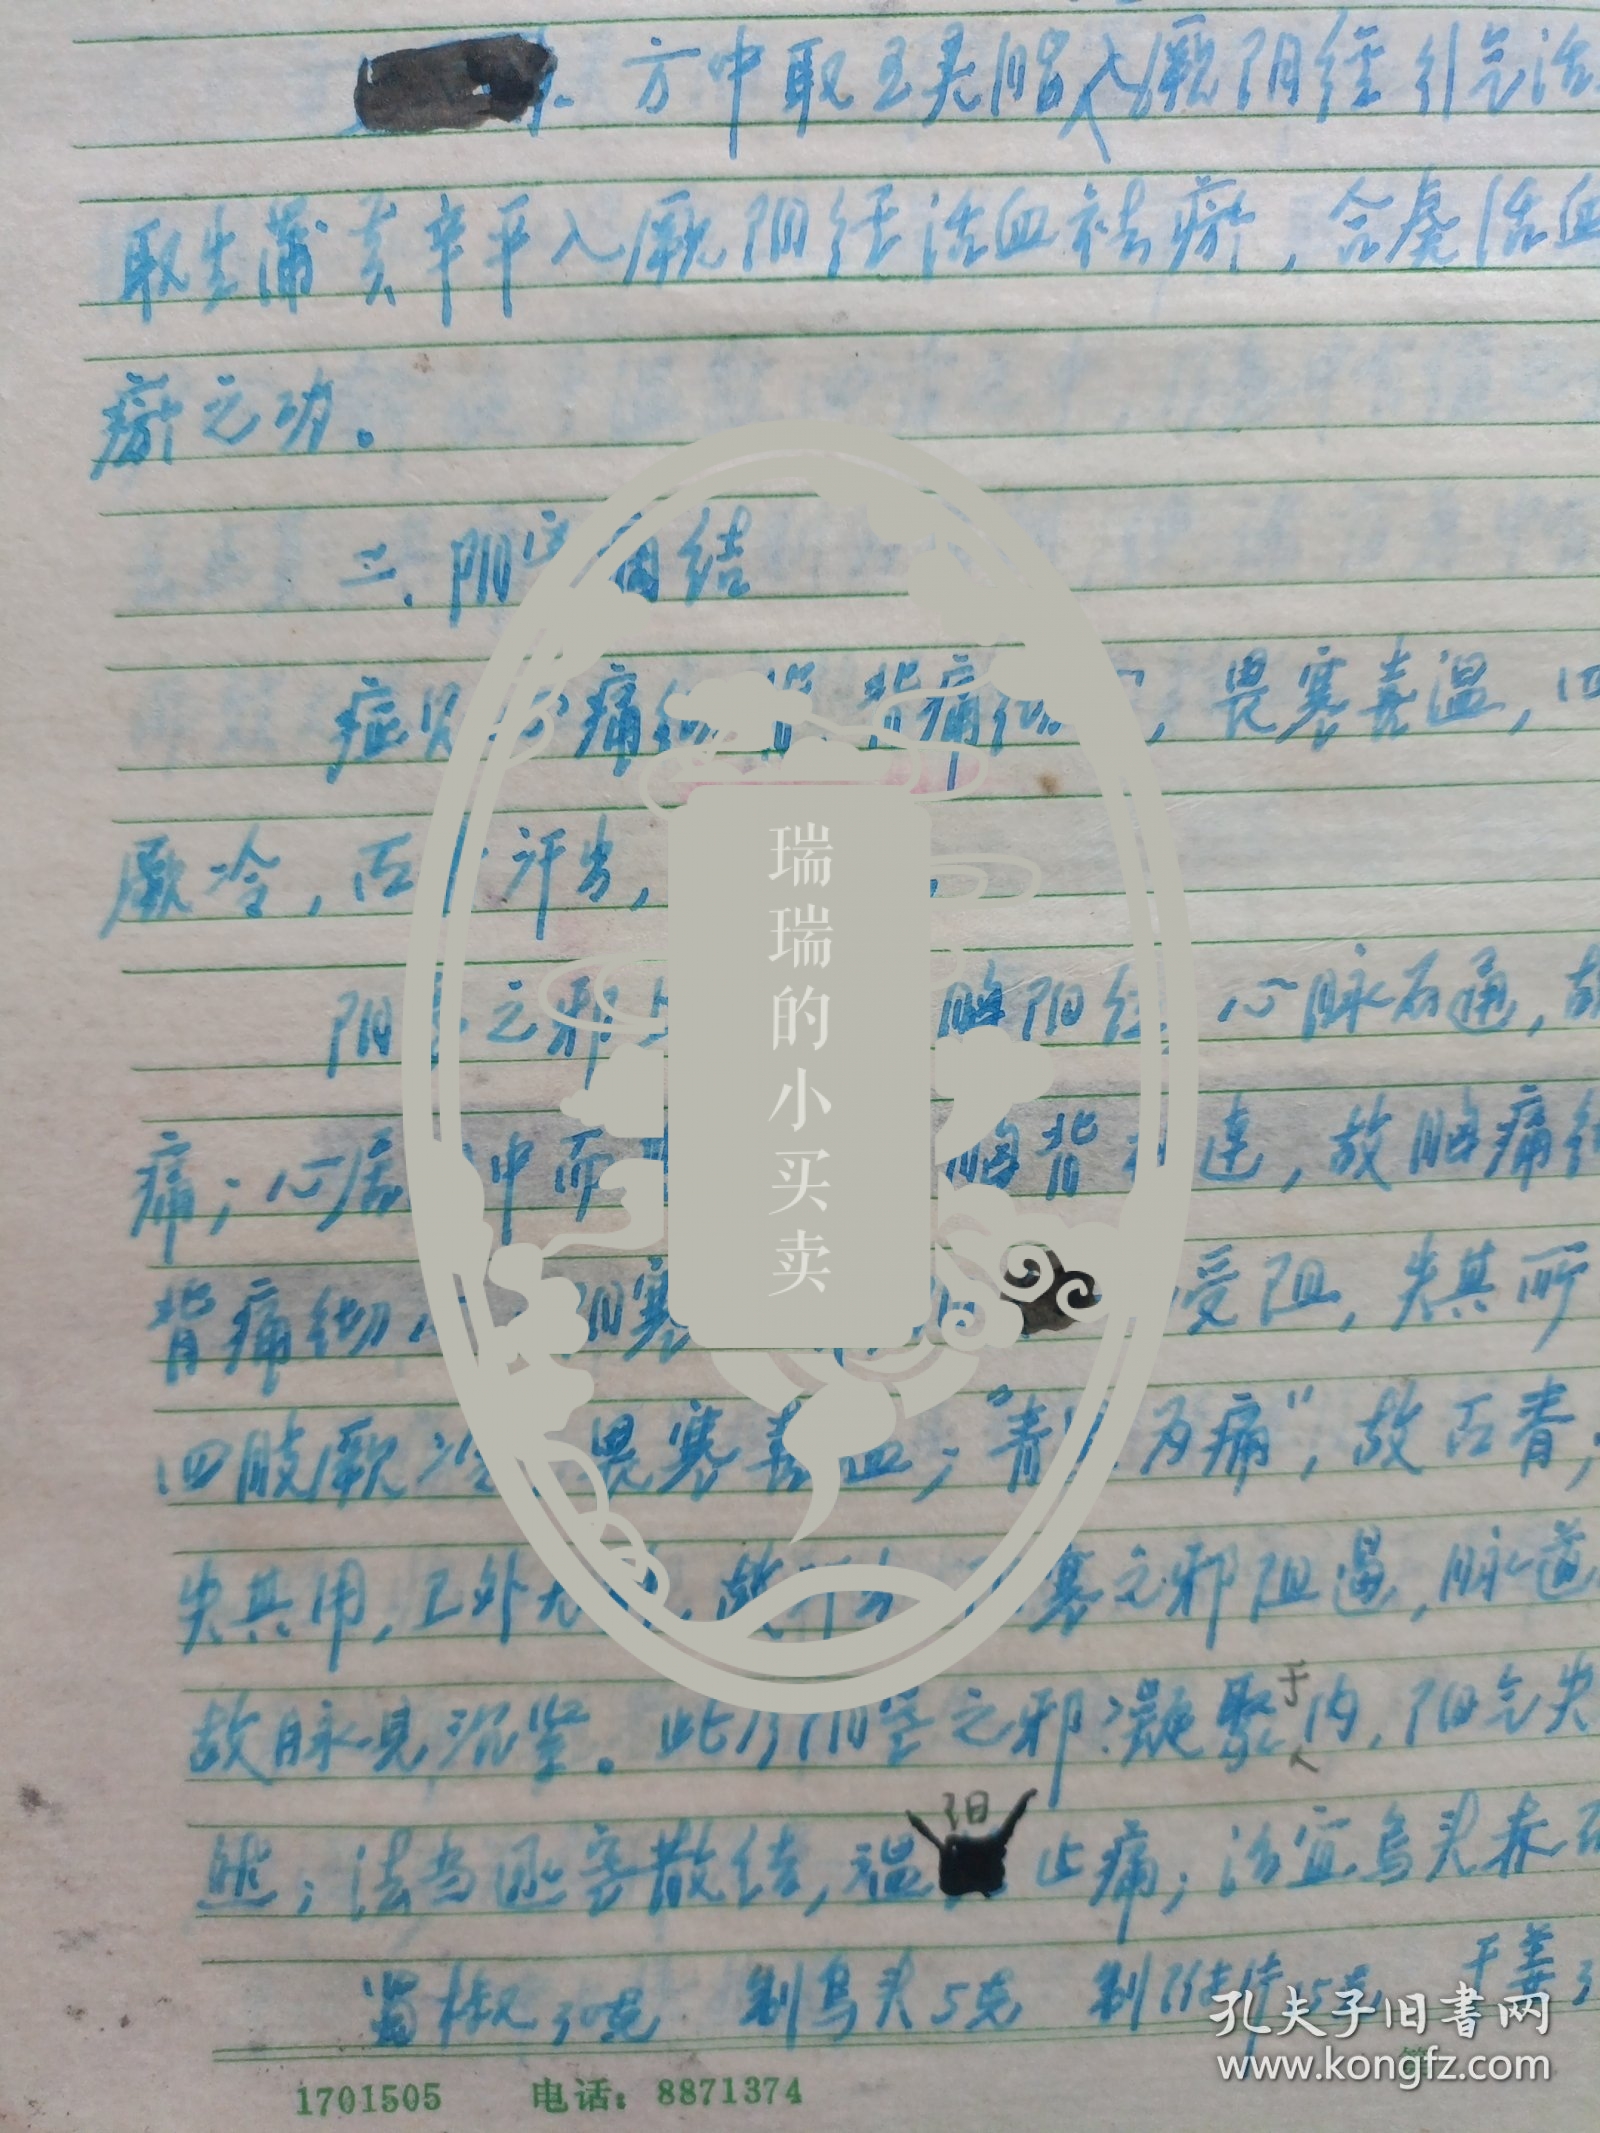 方中取五灵脂入厥阴经引气活
取生蒲黄辛平入厥阴经活血祛瘀，合奏活血
瘀之功。
二．阴 结
症见 痛彻背，背痛彻 ，畏寒喜温，四
厥冷，面 汗出，
阴 之邪上 胸阳 ，心脉不通，故
痛；心居 中而 胸背 连，故胸痛彻
背痛彻 寒 受阻，失其所
四肢厥冷，畏寒喜温；“青 为痛”，故面青；
失其用，卫外 ，故汗出； 寒之邪阻遏，脉道
故脉见沉紧。此乃阴寒之邪凝聚于内，阳气失
然；法当逐寒散结，温阳止痛；治宜乌头赤石
蜀椒30克 制乌头5克 制附片15克 干姜3
1701505 电话：8871374
瑞瑞的小买卖
孔夫子旧书网
www.kongfz.com